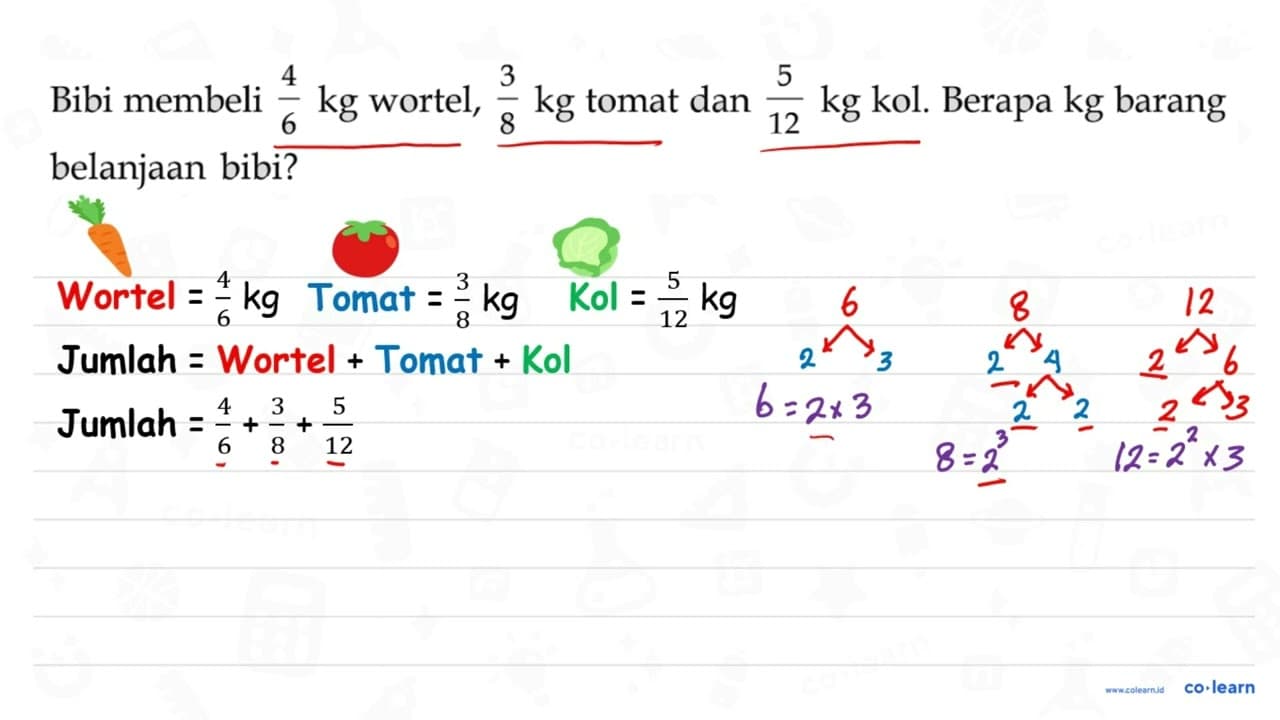 Bibi membeli 4/6 kg wortel, 3/8 kg tomat dan 5/12 kg kol. Berapa kg barang
belanjaan bibi?
Wortel = 4/6 kg Tomat = 3/8 kg Kol = 5/12 kg
Jumlah = Wortel + Tomat + Kol
Jumlah = 4/6 + 3/8 + 5/12
6
2 3
6 = 2 x 3
8
2 4
2 2
8 = 2³
12
2 6
2 3
12 = 2² x 3
www.colearn.id co·learn